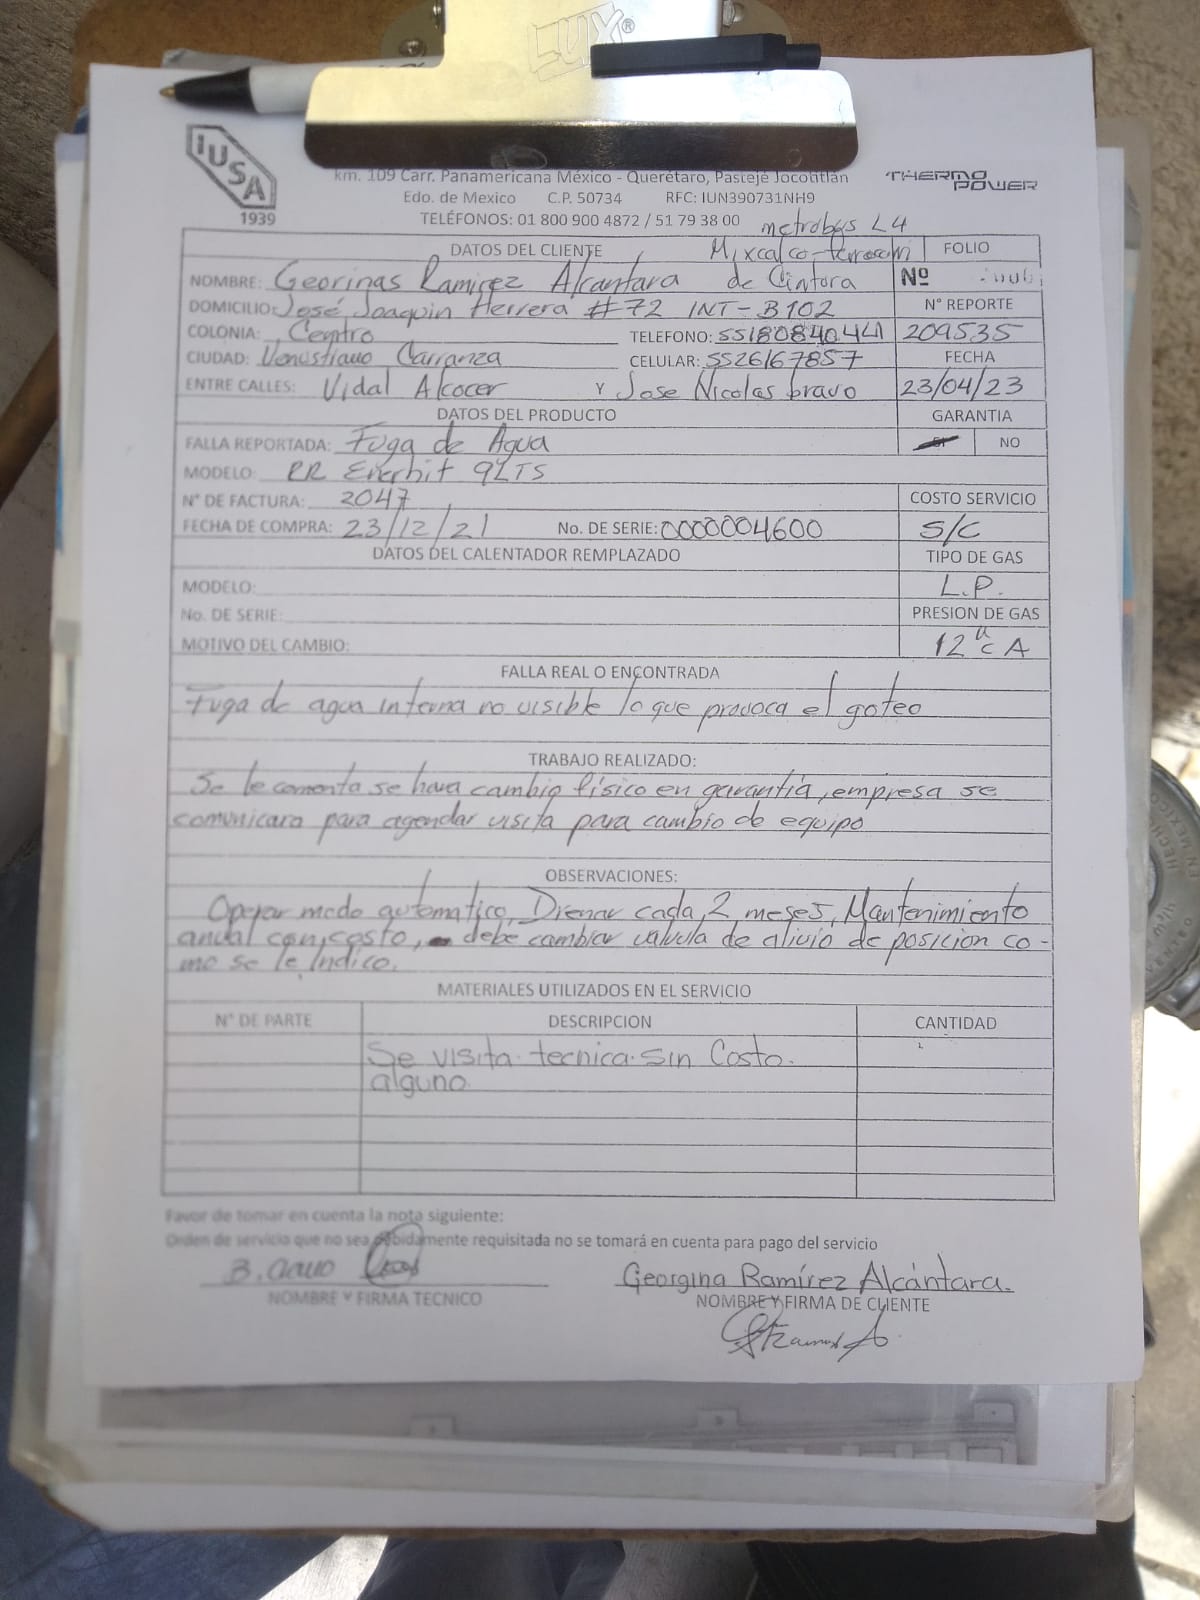 LUX®
IUSA
1939
km. 109 Carr. Panamericana México - Querétaro, Pastejé Jocotitlán
THERMO POWER
Edo. de Mexico C.P. 50734 RFC: IUN390731NH9
TELÉFONOS: 01 800 900 4872 / 51 79 38 00 metrobus L4
DATOS DEL CLIENTE Mixcalco FOLIO
NOMBRE: Georinas Ramirez Alcantara de Cintora Nº
DOMICILIO: José Joaquin Herrera #72 INT-B102 N° REPORTE
COLONIA: Centro TELEFONO: 209535
CIUDAD: Venustiano Carranza CELULAR: 5526167857 FECHA
ENTRE CALLES: Vidal Alcocer Y Jose Nicolas bravo 23/04/23
DATOS DEL PRODUCTO GARANTIA
FALLA REPORTADA: Fuga de Agua NO
MODELO: RR Enerhit 9LTS
N° DE FACTURA: 2047 COSTO SERVICIO
FECHA DE COMPRA: 23/12/21 No. DE SERIE: 0000004600 S/C
DATOS DEL CALENTADOR REMPLAZADO TIPO DE GAS
MODELO: L.P.
No. DE SERIE: PRESION DE GAS
MOTIVO DEL CAMBIO: 12 "c A
FALLA REAL O ENCONTRADA
Fuga de agua interna no visible lo que provoca el goteo
TRABAJO REALIZADO:
Se le comenta se hara cambio físico en garantía, empresa se
comunicara para agendar visita para cambio de equipo
OBSERVACIONES:
Operar modo automatico, Drenar cada 2 meses, Mantenimiento
anual con costo, debe cambiar valvula de alivio de posicion co-
mo se le Indico.
MATERIALES UTILIZADOS EN EL SERVICIO
N° DE PARTE DESCRIPCION CANTIDAD
Se visita tecnica sin Costo.
alguno
Favor de tomar en cuenta la nota siguiente:
Orden de servicio que no sea debidamente requisitada no se tomará en cuenta para pago del servicio
Georgina Ramírez Alcántara.
NOMBRE Y FIRMA TECNICO NOMBRE Y FIRMA DE CLIENTE